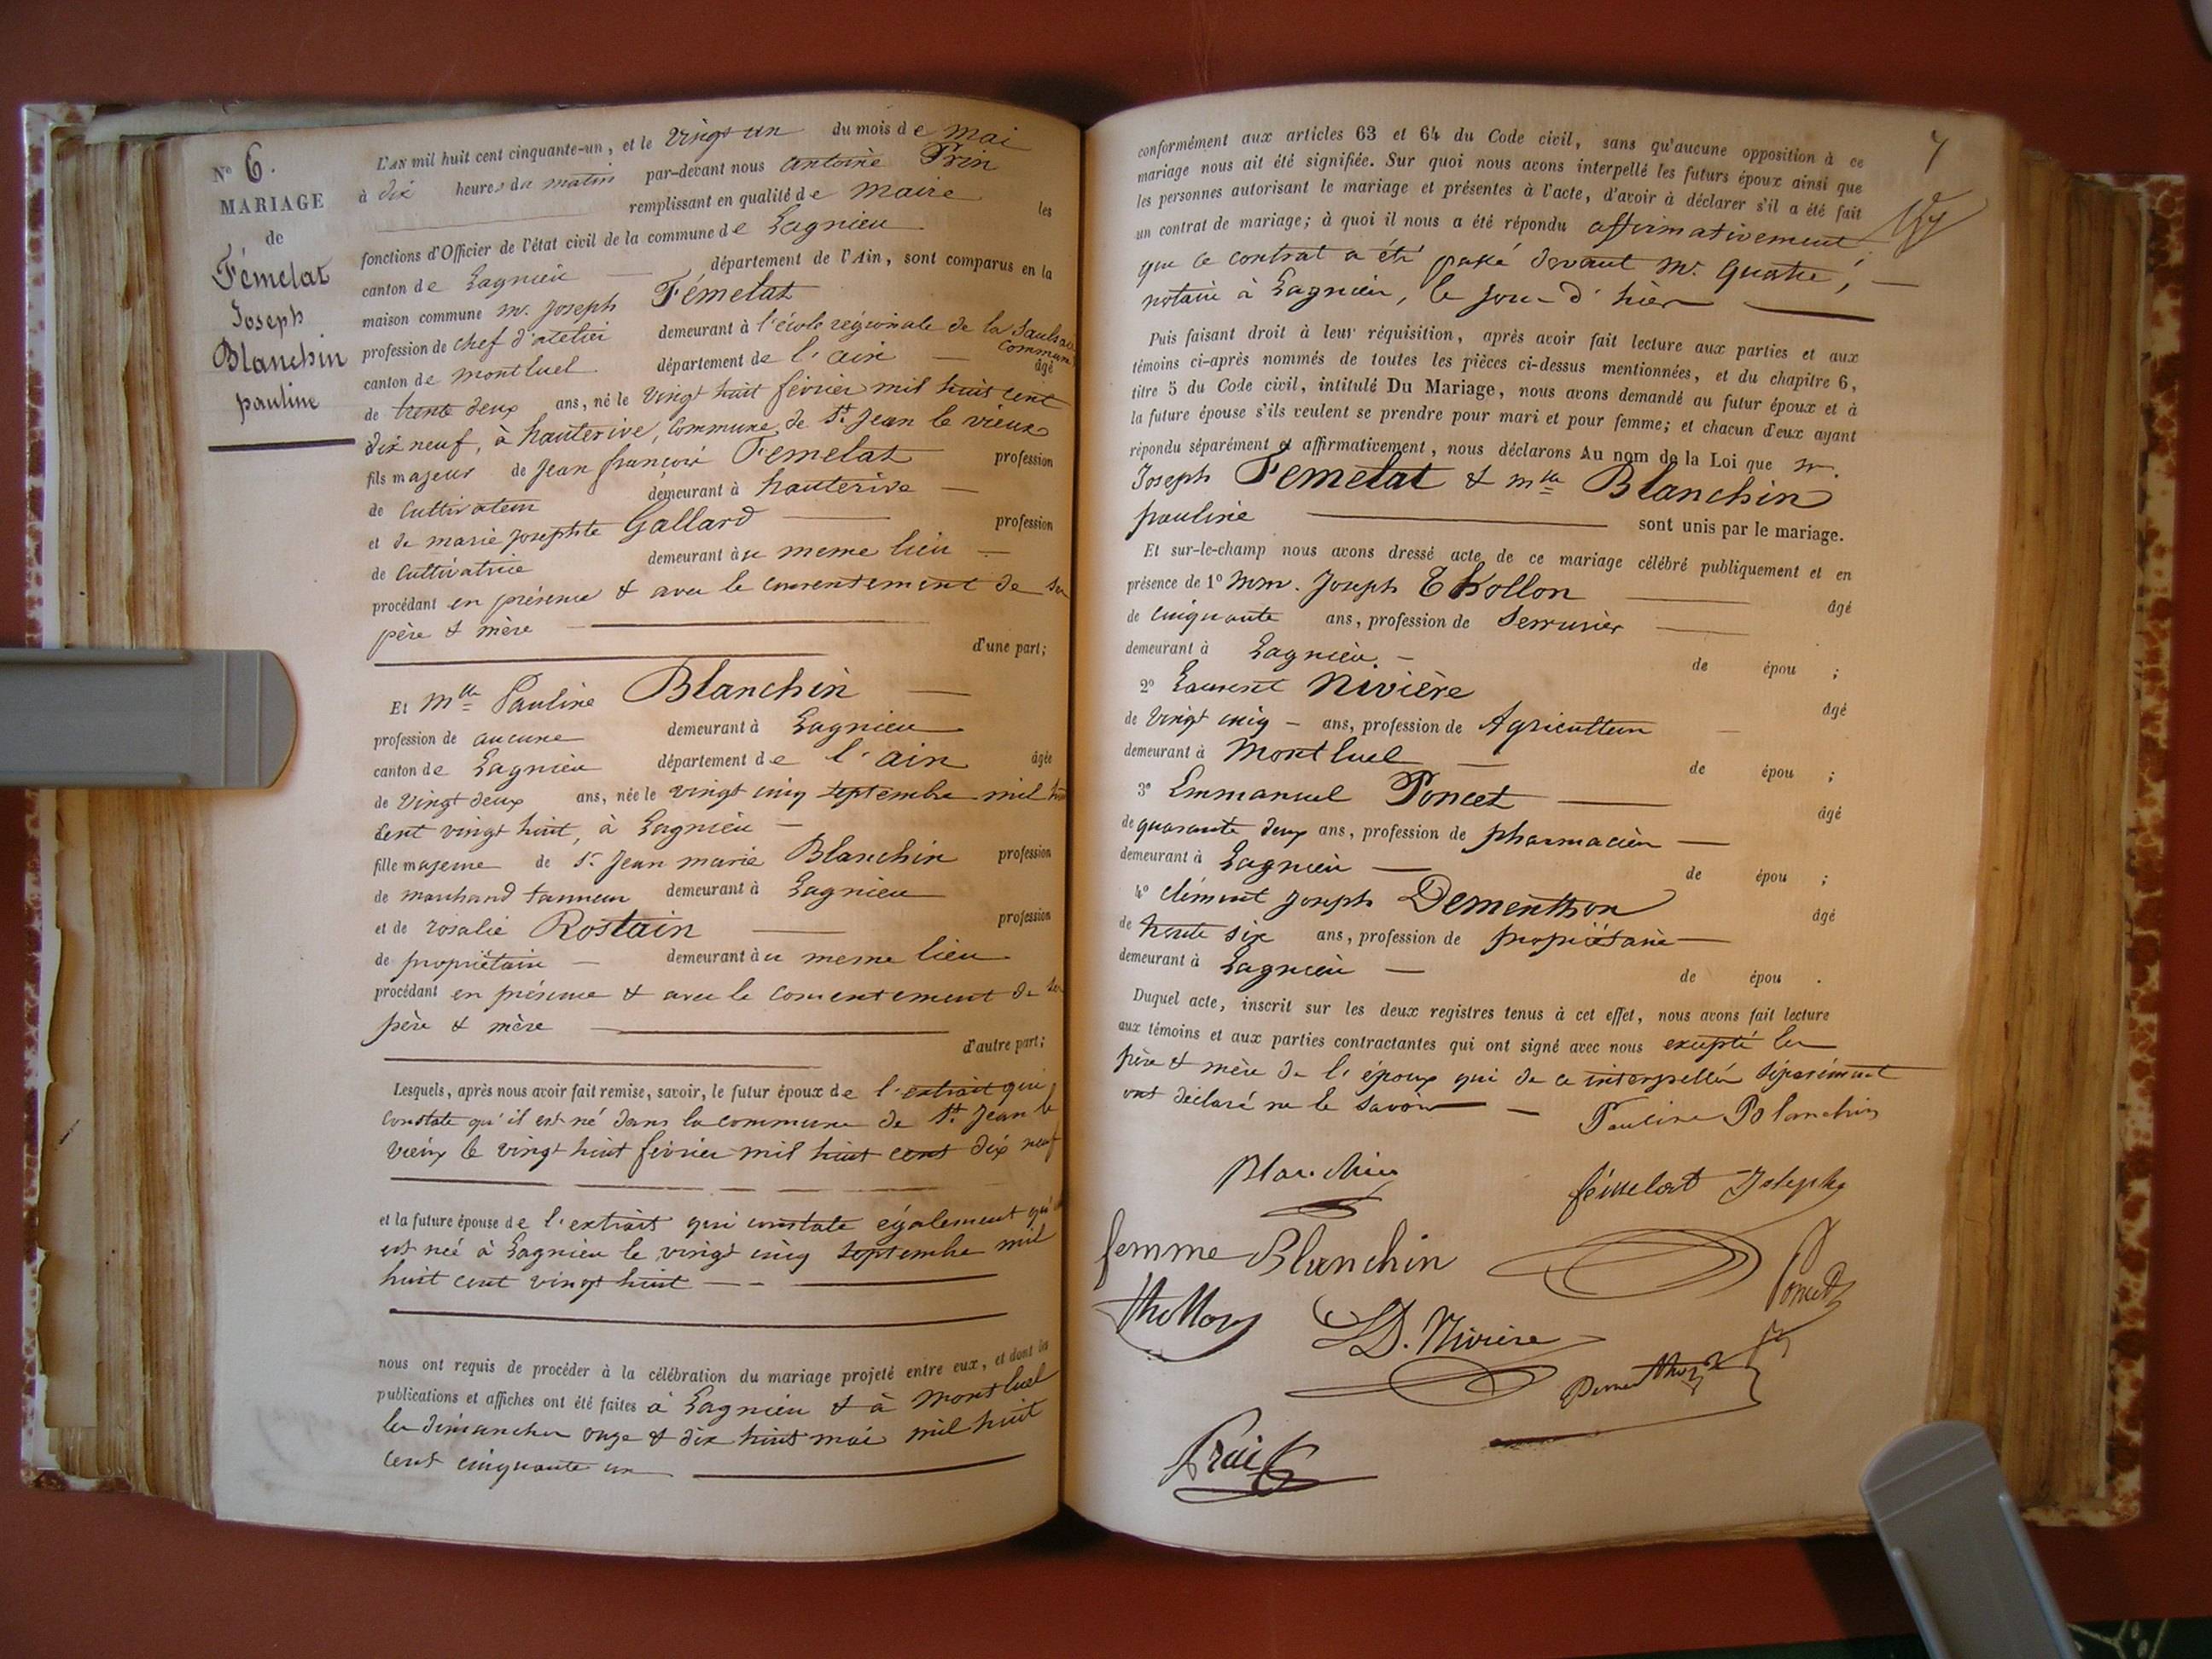 N° 6.
MARIAGE
de
Fémelat
Joseph
Blanchin
pauline
L'AN mil huit cent cinquante-un, et le vingt un du mois de mai
à dix heures du matin par-devant nous antoine Prin
remplissant en qualité de maire les
fonctions d'Officier de l'état civil de la commune de Lagnieu
canton de Lagnieu département de l'Ain, sont comparus en la
maison commune mr. Joseph Fémelat
profession de chef d'atelier demeurant à l'école régionale de la Saulsaie
commune
canton de montluel département de l'ain âgé
de trente deux ans, né le vingt huit février mil huit cent
dix neuf, à hauterive, commune de St. Jean le vieux
fils majeur de Jean françois Femelat profession
de cultivateur demeurant à hauterive
et de marie josephte Gallard profession
de cultivatrice demeurant au meme lieu
procédant en présence & avec le consentement de ses
père & mère
d'une part;
Et Mlle Pauline Blanchin
profession de aucune demeurant à Lagnieu
canton de Lagnieu département de l'ain âgée
de vingt deux ans, née le vingt cinq septembre mil huit
cent vingt huit, à Lagnieu
fille majeure de Sr. Jean marie Blanchin profession
de marchand tanneur demeurant à Lagnieu
et de rosalie Rostain profession
de propriétaire demeurant au meme lieu
procédant en présence & avec le consentement de ses
père & mère
d'autre part;
Lesquels, après nous avoir fait remise, savoir, le futur époux de l'extrait qui
constate qu'il est né dans la commune de St. Jean le
vieux le vingt huit février mil huit cent dix neuf
et la future épouse de l'extrait qui constate également qu'elle
est née à Lagnieu le vingt cinq septembre mil
huit cent vingt huit
nous ont requis de procéder à la célébration du mariage projeté entre eux, et dont les
publications et affiches ont été faites à Lagnieu & à Montluel
les dimanches onze & dix huit mai mil huit
cent cinquante un
7
conformément aux articles 63 et 64 du Code civil, sans qu'aucune opposition à ce
mariage nous ait été signifiée. Sur quoi nous avons interpellé les futurs époux ainsi que
les personnes autorisant le mariage et présentes à l'acte, d'avoir à déclarer s'il a été fait
un contrat de mariage; à quoi il nous a été répondu affirmativement
que ce contrat a été passé devant Mr. Quatre,
notaire à Lagnieu, le jour d'hier
Puis faisant droit à leur réquisition, après avoir fait lecture aux parties et aux
témoins ci-après nommés de toutes les pièces ci-dessus mentionnées, et du chapitre 6,
titre 5 du Code civil, intitulé Du Mariage, nous avons demandé au futur époux et à
la future épouse s'ils veulent se prendre pour mari et pour femme; et chacun d'eux ayant
répondu séparément et affirmativement, nous déclarons Au nom de la Loi que mr.
Joseph Femelat & mlle Blanchin
pauline sont unis par le mariage.
Et sur-le-champ nous avons dressé acte de ce mariage célébré publiquement et en
présence de 1° Mm. Joseph Thollon âgé
de cinquante ans, profession de Serrurier
demeurant à Lagnieu. de épou ;
2° Laurent Nivière âgé
de vingt cinq ans, profession de Agriculteur
demeurant à Montluel de épou ;
3° Emmanuel Poncet âgé
de quarante deux ans, profession de pharmacien
demeurant à Lagnieu de épou ;
4° clément joseph Dementhon âgé
de trente six ans, profession de propriétaire
demeurant à Lagnieu de épou .
Duquel acte, inscrit sur les deux registres tenus à cet effet, nous avons fait lecture
aux témoins et aux parties contractantes qui ont signé avec nous excepté les
père & mère de l'époux qui de ce interpellés séparément
ont déclaré ne le savoir
Pauline Blanchin
Blanchin
fémelat Joseph
femme Blanchin
Poncet
thollon
LD. Nivière
Dementhon
Prin